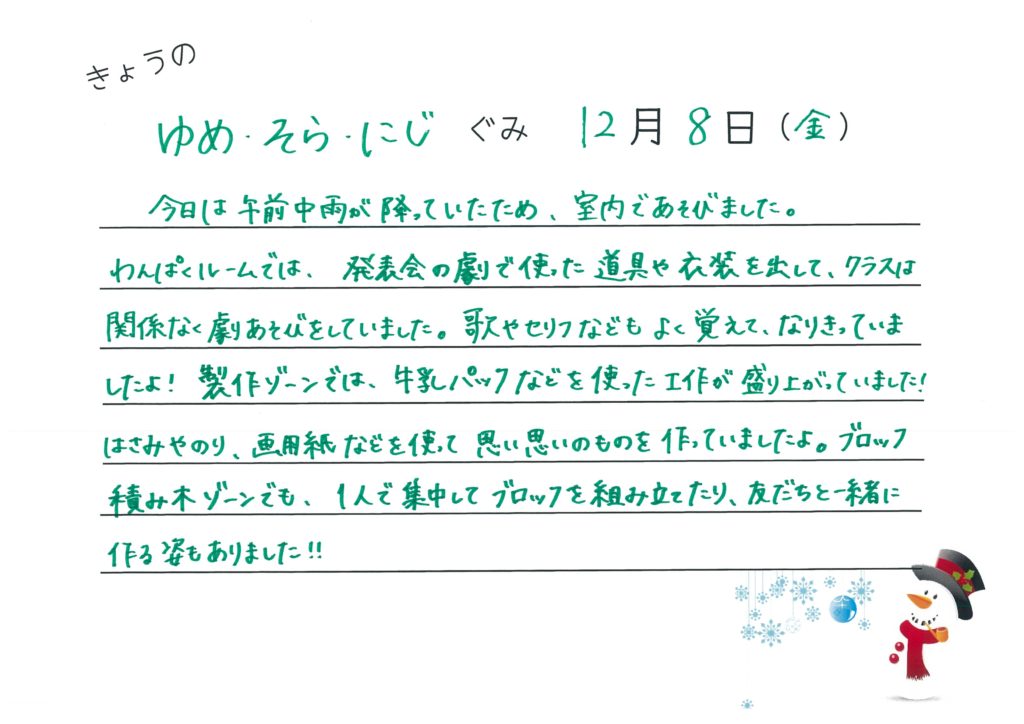 きょうの
ゆめ・そら・にじ ぐみ 12月8日(金)
今日は午前中雨が降っていたため、室内であそびました。
わんぱくルームでは、発表会の劇で使った道具や衣装を出して、クラスは
関係なく劇あそびをしていました。歌やセリフなどもよく覚えて、なりきっていま
したよ!製作ゾーンでは、牛乳パックなどを使った工作が盛り上がっていました!
はさみやのり、画用紙などを使って思い思いのものを作っていましたよ。ブロック
積み木ゾーンでも、1人で集中してブロックを組み立てたり、友だちと一緒に
作る姿もありました!!